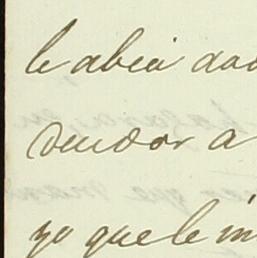 le abia dad
deudor a
yo que le in